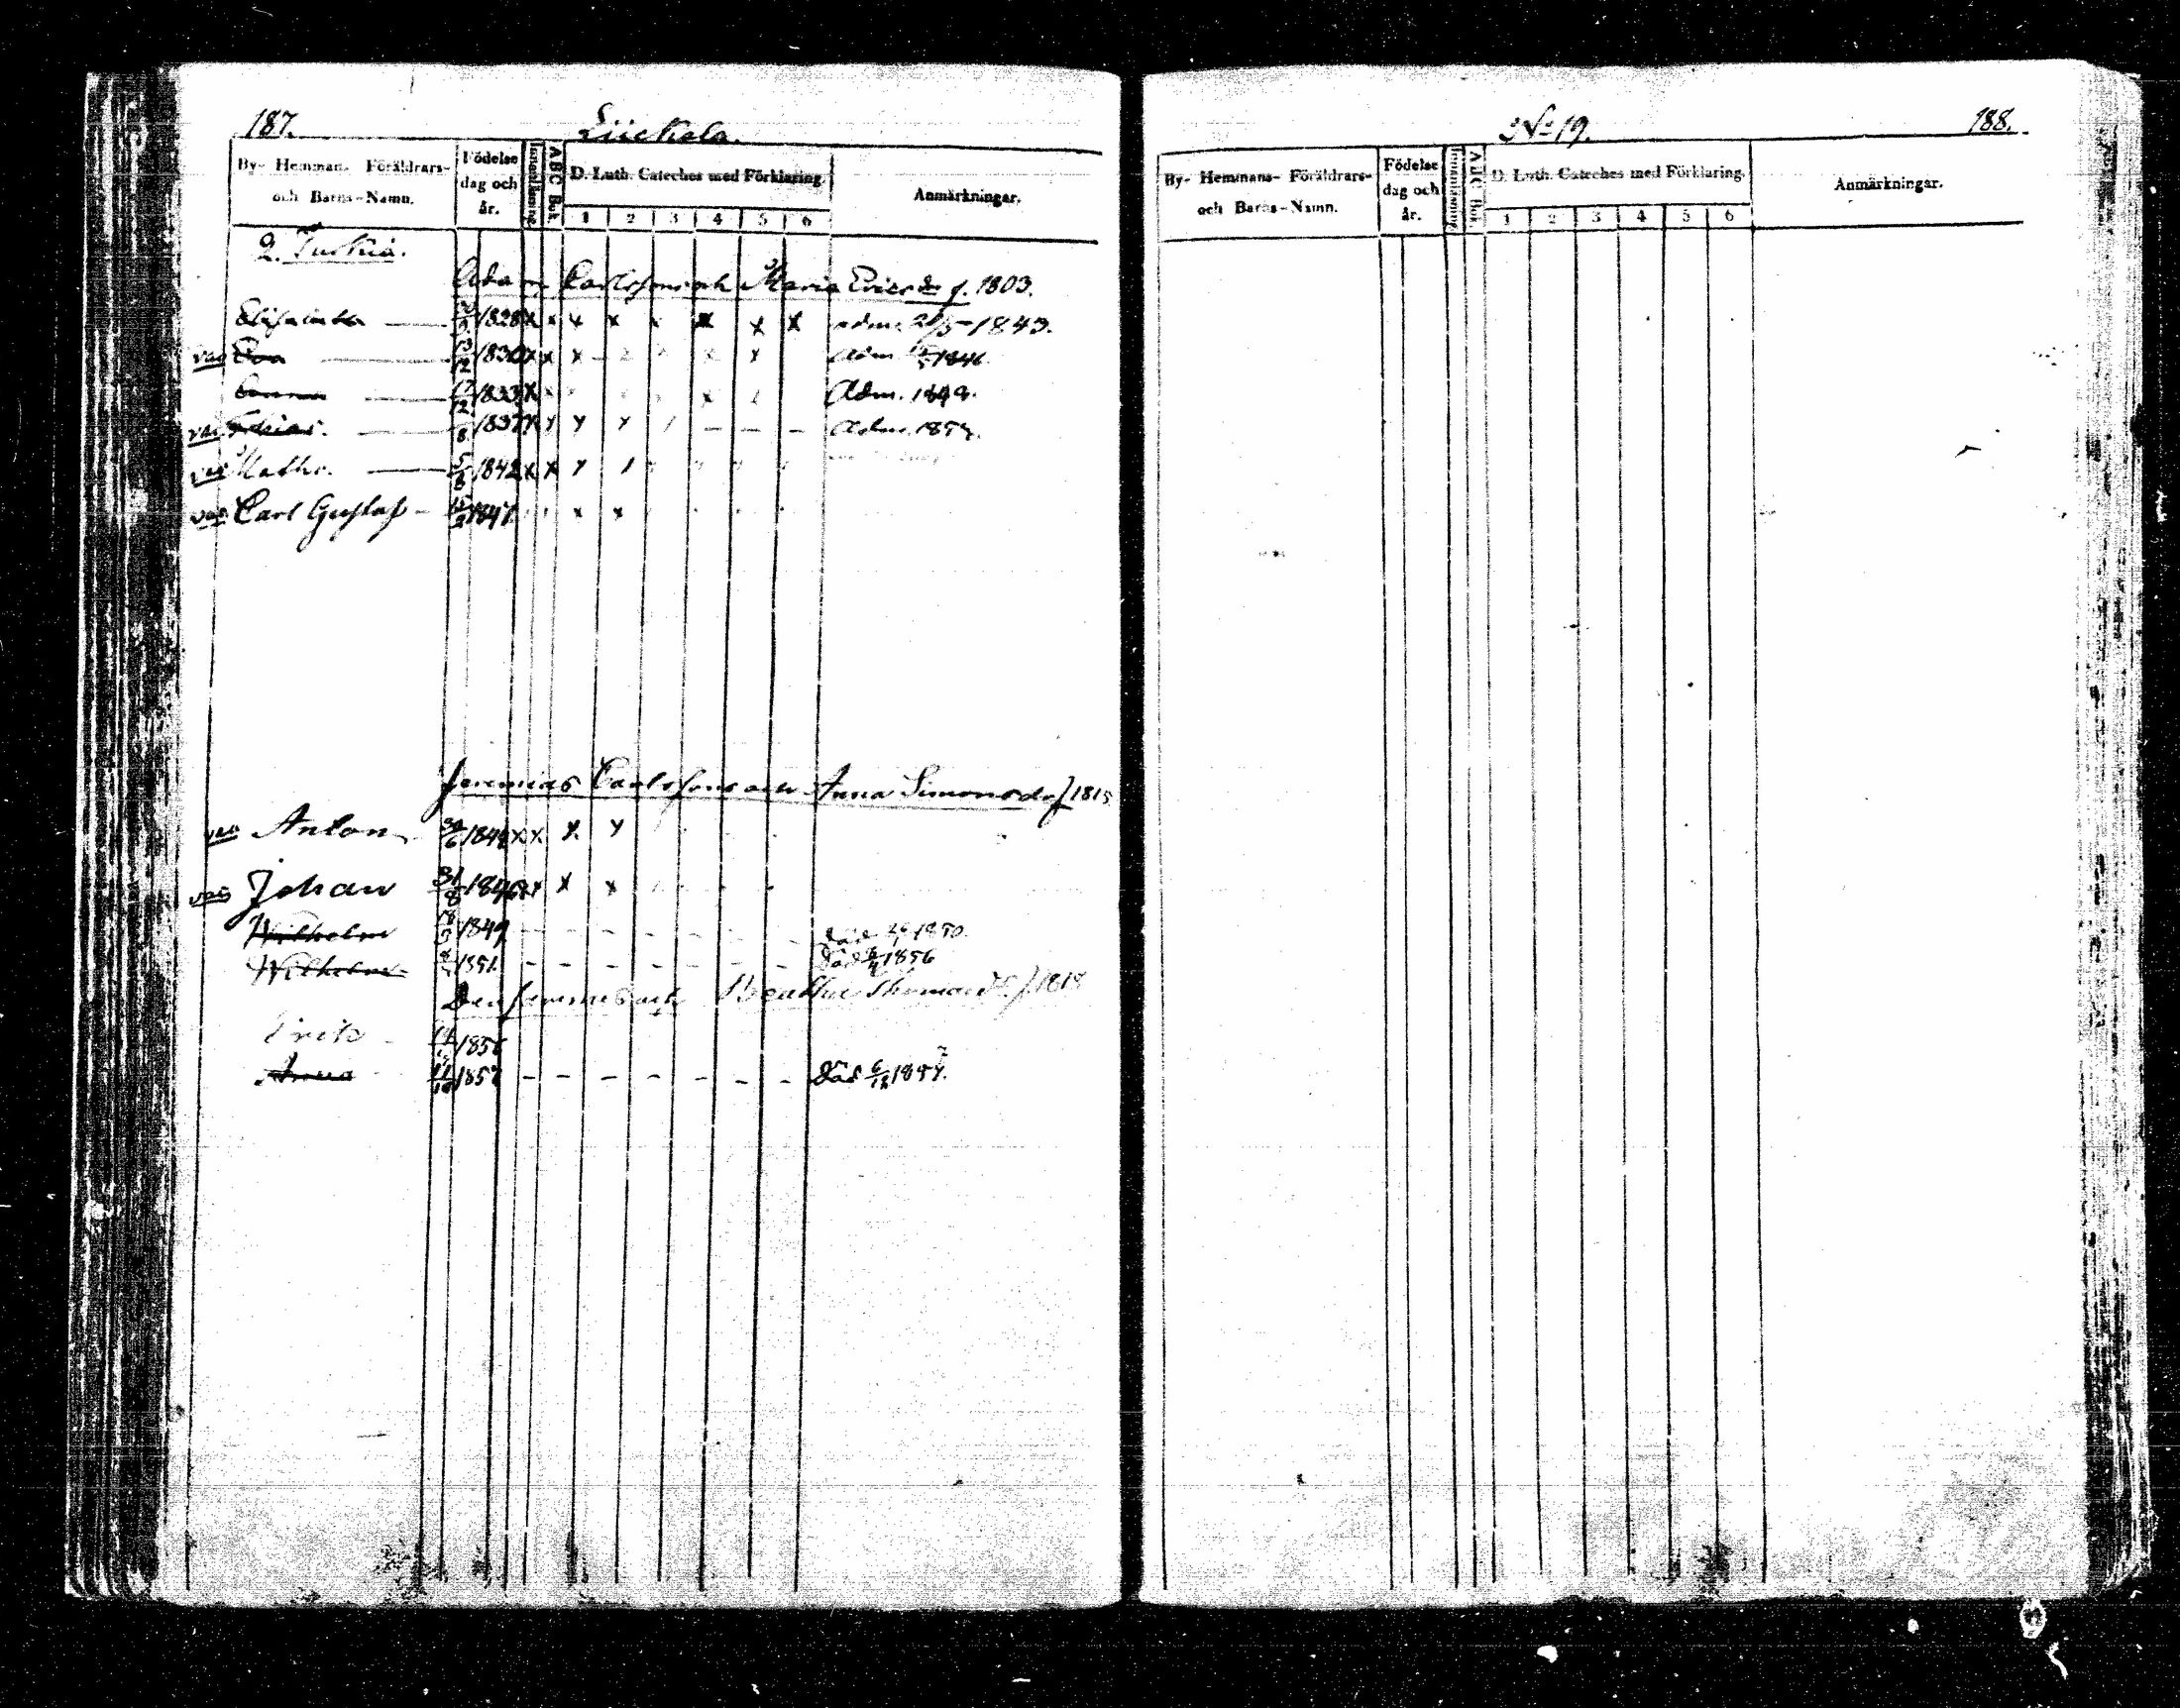 187. Liickala.
By- Hemman- Föräldrars- och Barns-Namn.
Födelse dag och år.
Innanläsning
ABC Bok.
D. Luth. Cateches med Förklaring.
1 2 3 4 5 6
Anmärkningar.
2. Turkia.
Adam Carlsson och Maria Ericsdr f. 1803.
Elisabeth 1828 x x x x x x x x adm. 1843.
vac Eva 13/12 1830 x x x x adm. 1846.
Anna 17/12 1833 x x Adm. 1849.
vac 8 1837 x x x x – – – Adm.
vac Mathe. 1842 x x
vac Carl Gustaf – 1847 x x
Jeremias Carlsson och Anna Simonsd. f 1815
vac Anton 30/6 1844 x x x x
vac Johan 31/8 1846 x x x x
Wilhelm 1849 – – – – – – – död 1850.
Wilhelm 1851. – – – – – – – död 1856
Densamme och Beatha Thomasdr f. 1818
Erik 1856
Anna 11/10 1857 – – – – – – – död 6/12 1857.
No 19. 188.
By- Hemmans- Föräldrars- och Barns-Namn.
Födelse dag och år.
Innanläsning
ABC Bok.
D. Luth. Cateches med Förklaring.
1 2 3 4 5 6
Anmärkningar.